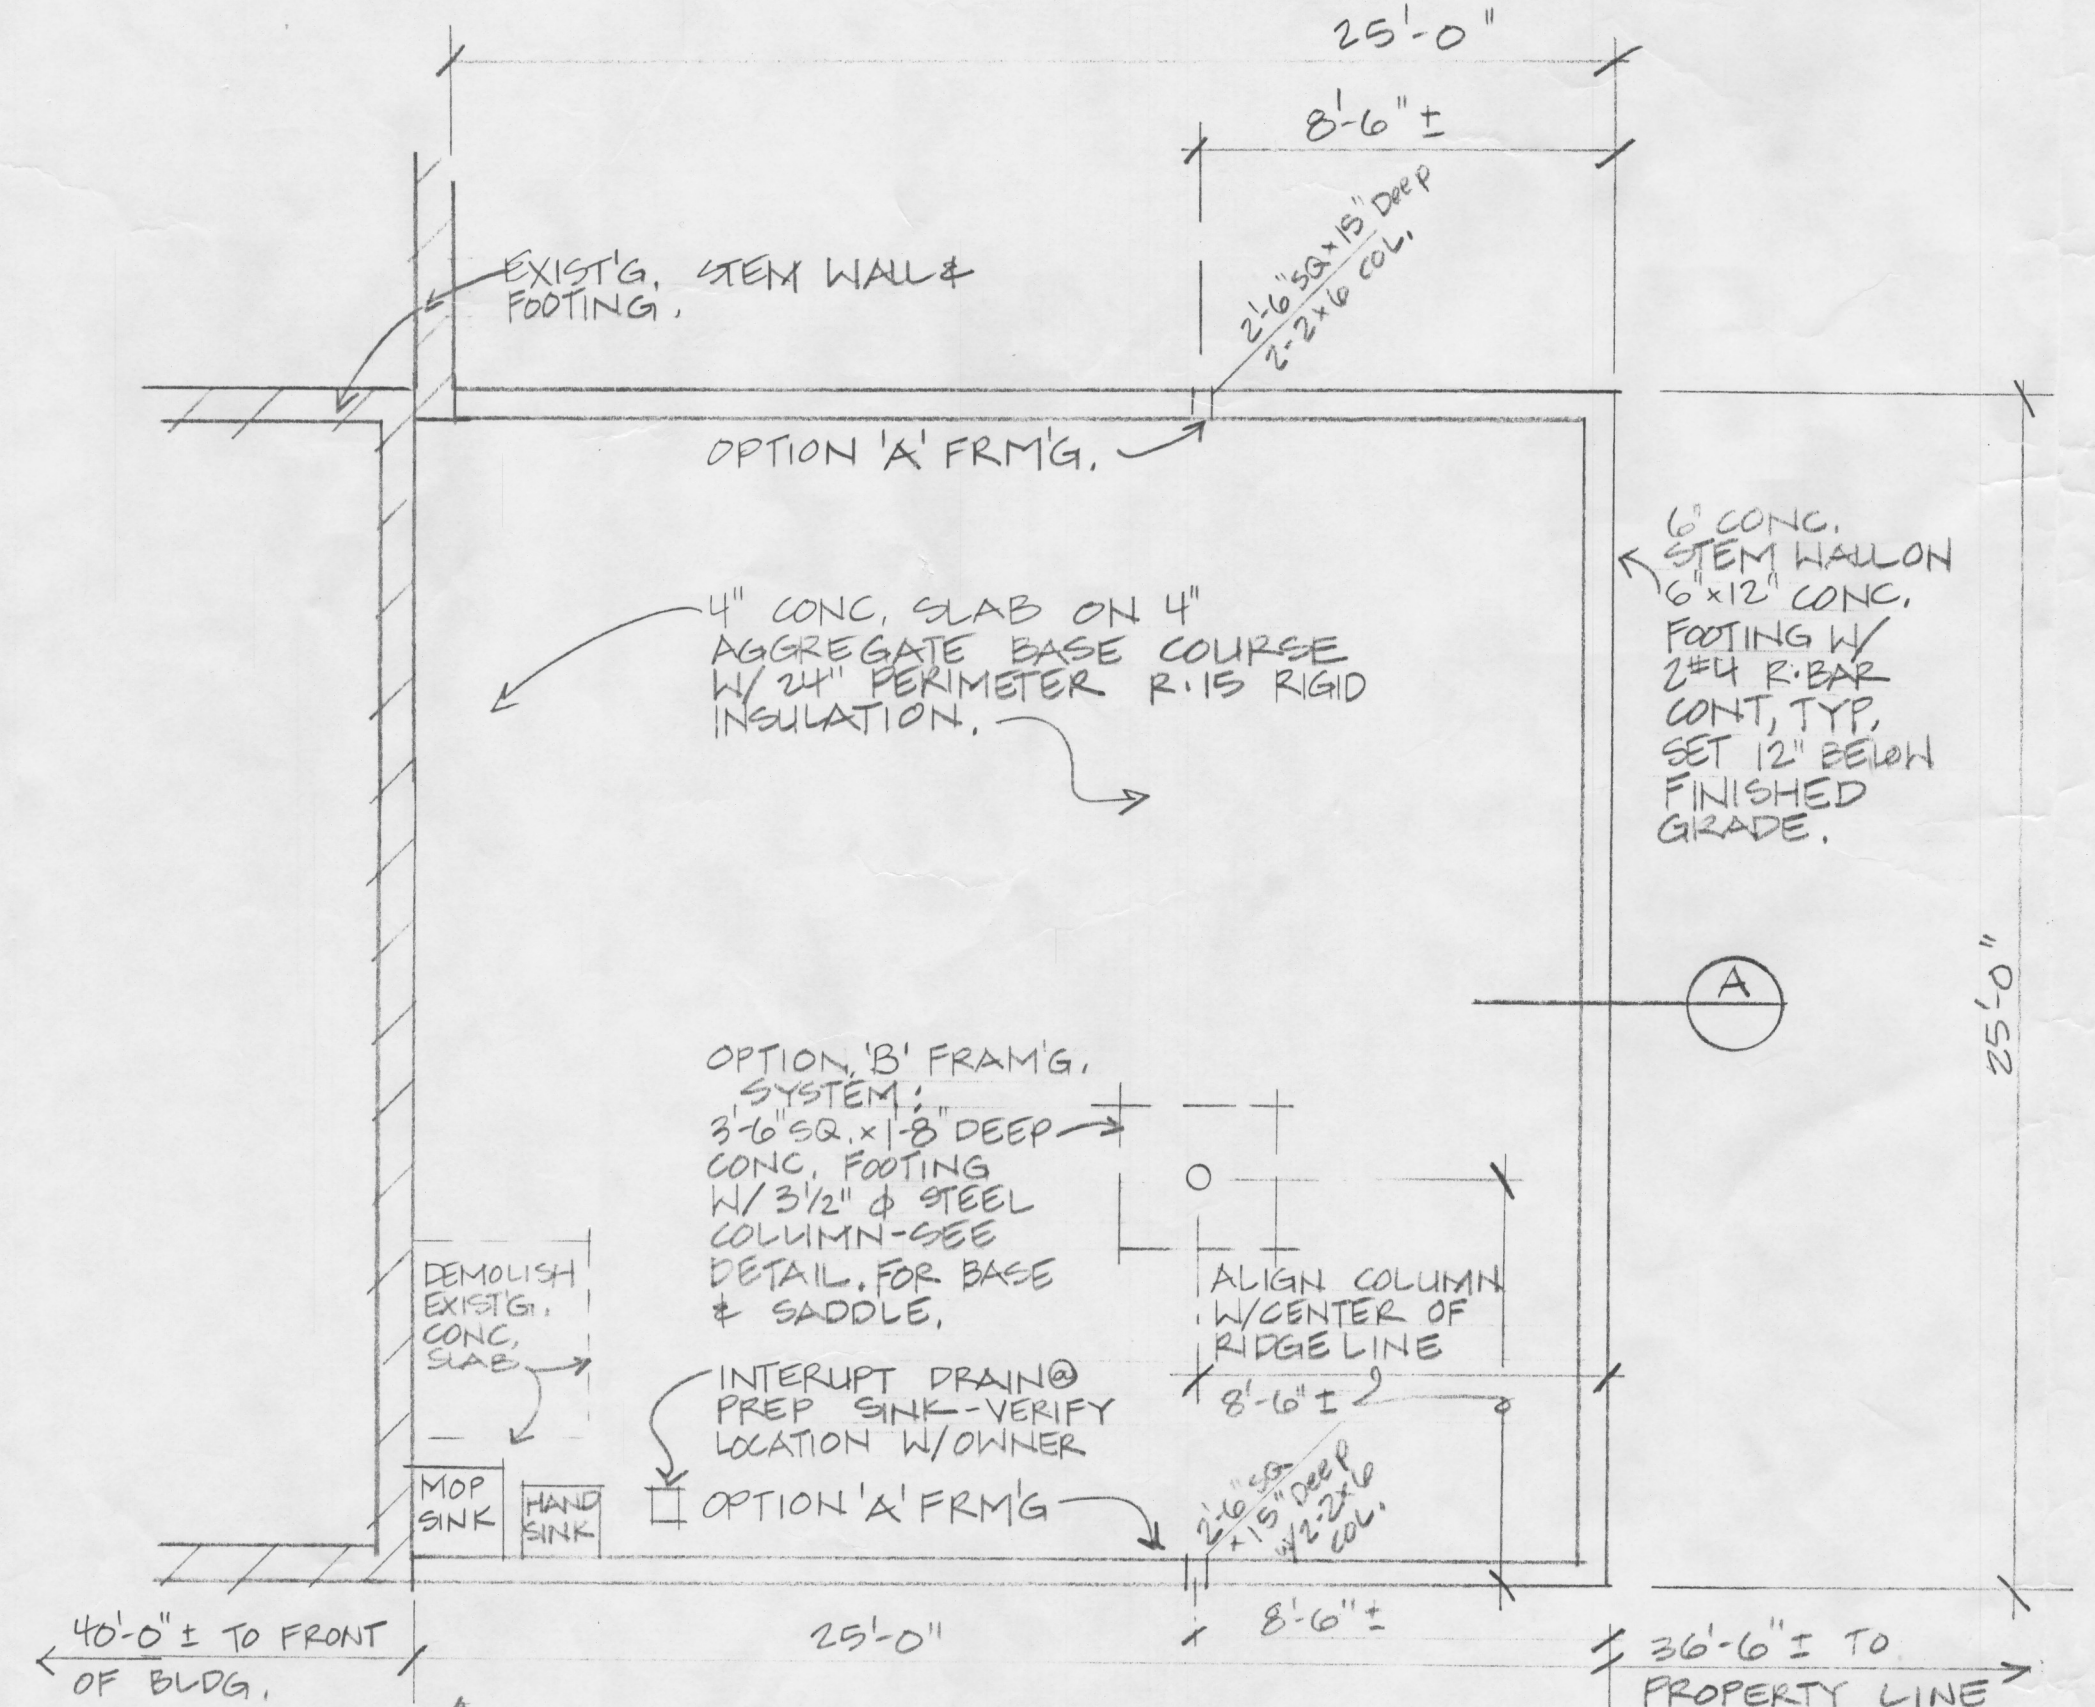 25'-0"
8'-6" ±
2'-6" SQ x 15" Deep
2-2x6 COL.
EXIST'G. STEM WALL &
FOOTING.
OPTION 'A' FRM'G.
6" CONC.
STEM WALL ON
6"x12" CONC.
FOOTING W/
2#4 R·BAR
CONT, TYP.
SET 12" BELOW
FINISHED
GRADE.
4" CONC. SLAB ON 4"
AGGREGATE BASE COURSE
W/ 24" PERIMETER R·15 RIGID
INSULATION.
A
25'-0"
OPTION 'B' FRAM'G.
SYSTEM:
3'-6" SQ. x 1'-8" DEEP
CONC. FOOTING
W/ 3 1/2" φ STEEL
COLUMN-SEE
DETAIL. FOR BASE
& SADDLE.
ALIGN COLUMN
W/CENTER OF
RIDGE LINE
8'-6" ±
DEMOLISH
EXIST'G.
CONC.
SLAB
INTERUPT DRAIN @
PREP SINK-VERIFY
LOCATION W/OWNER
MOP
SINK
HAND
SINK
OPTION 'A' FRM'G
2'-6" SQ
x 15" Deep
w/2-2x6
COL.
40'-0" ± TO FRONT
OF BLDG.
25'-0"
8'-6" ±
36'-6" ± TO
PROPERTY LINE